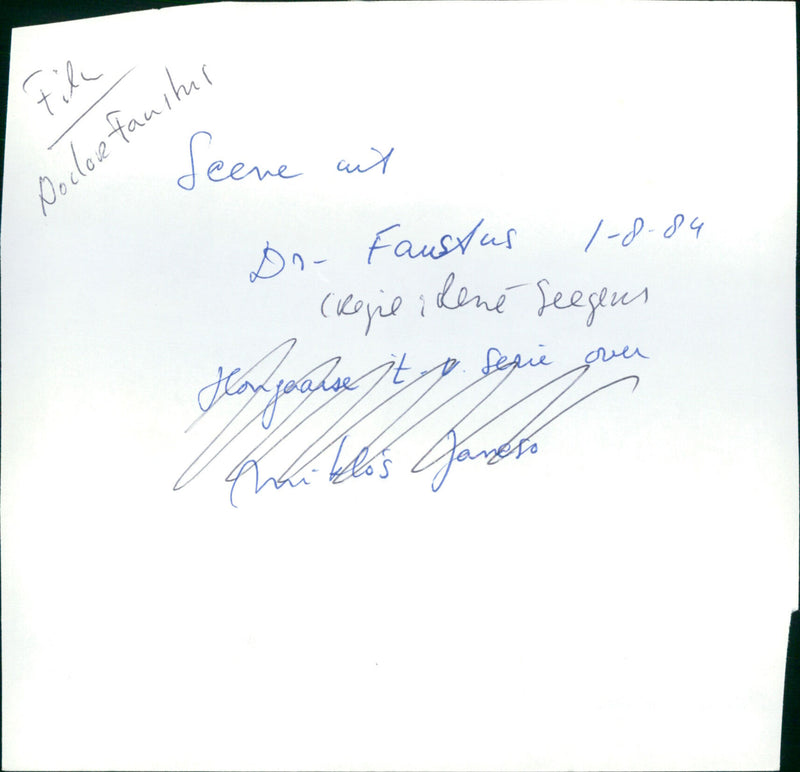 Film
Doctor Faustus
Scene uit
Dr- Faustus 1-8-84
(regie: René Seegers
Hongaarse t.v. serie over
(Miklós Jancso